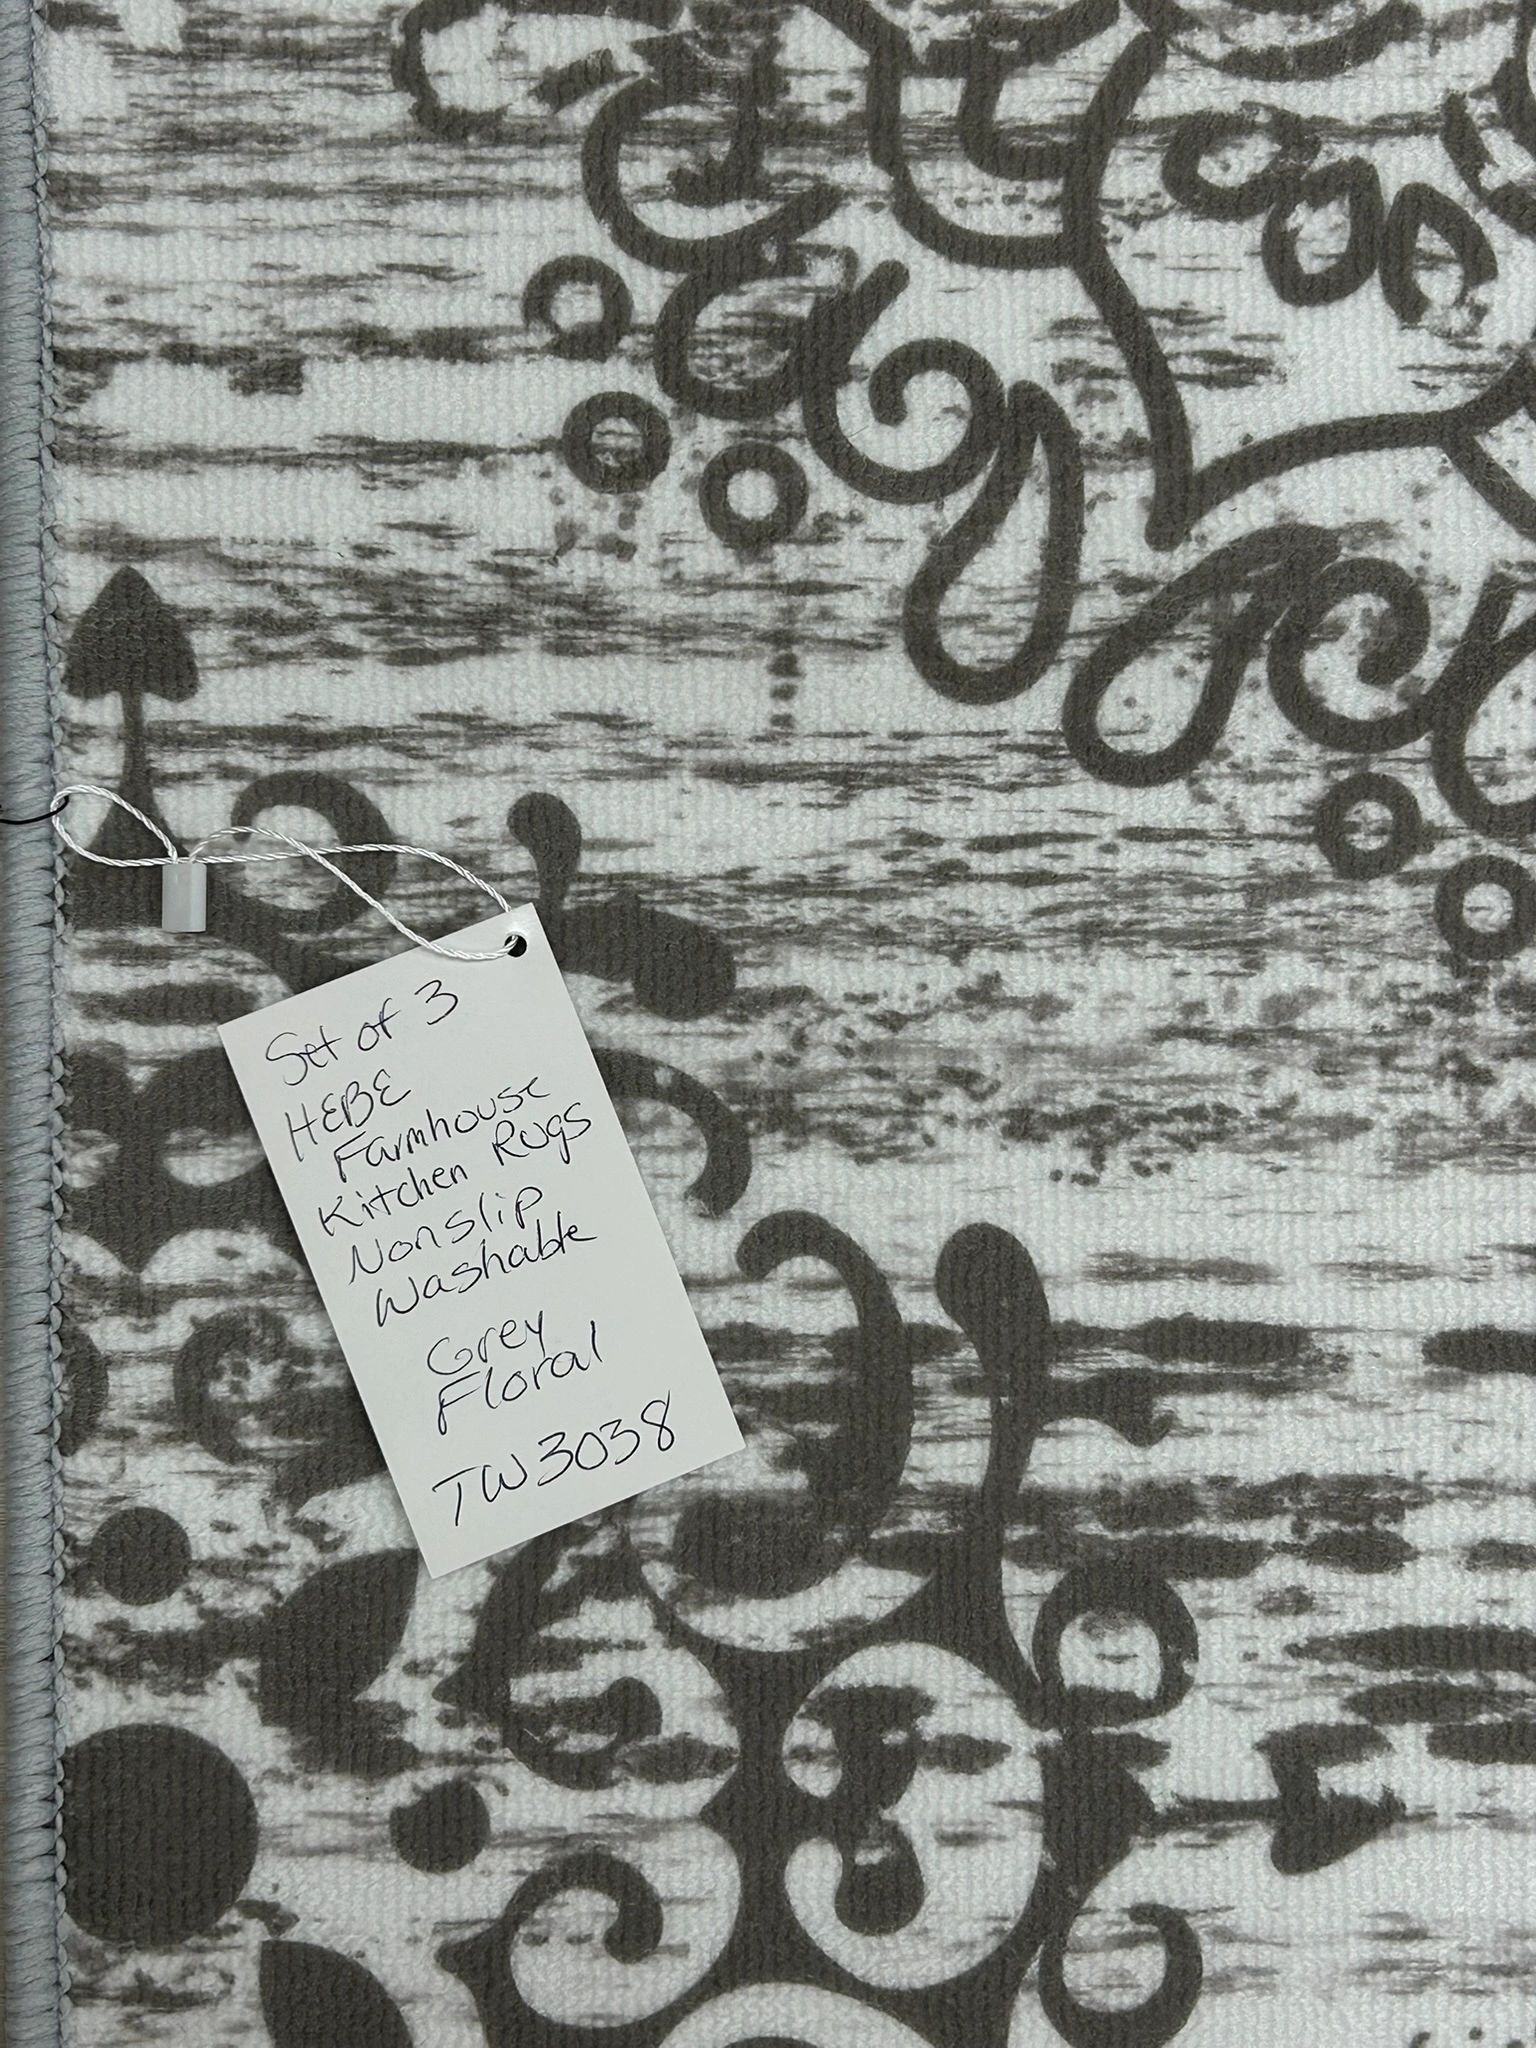 Set of 3
HEBE
Farmhouse
Kitchen Rugs
Nonslip
Washable
Grey
Floral
TW3038